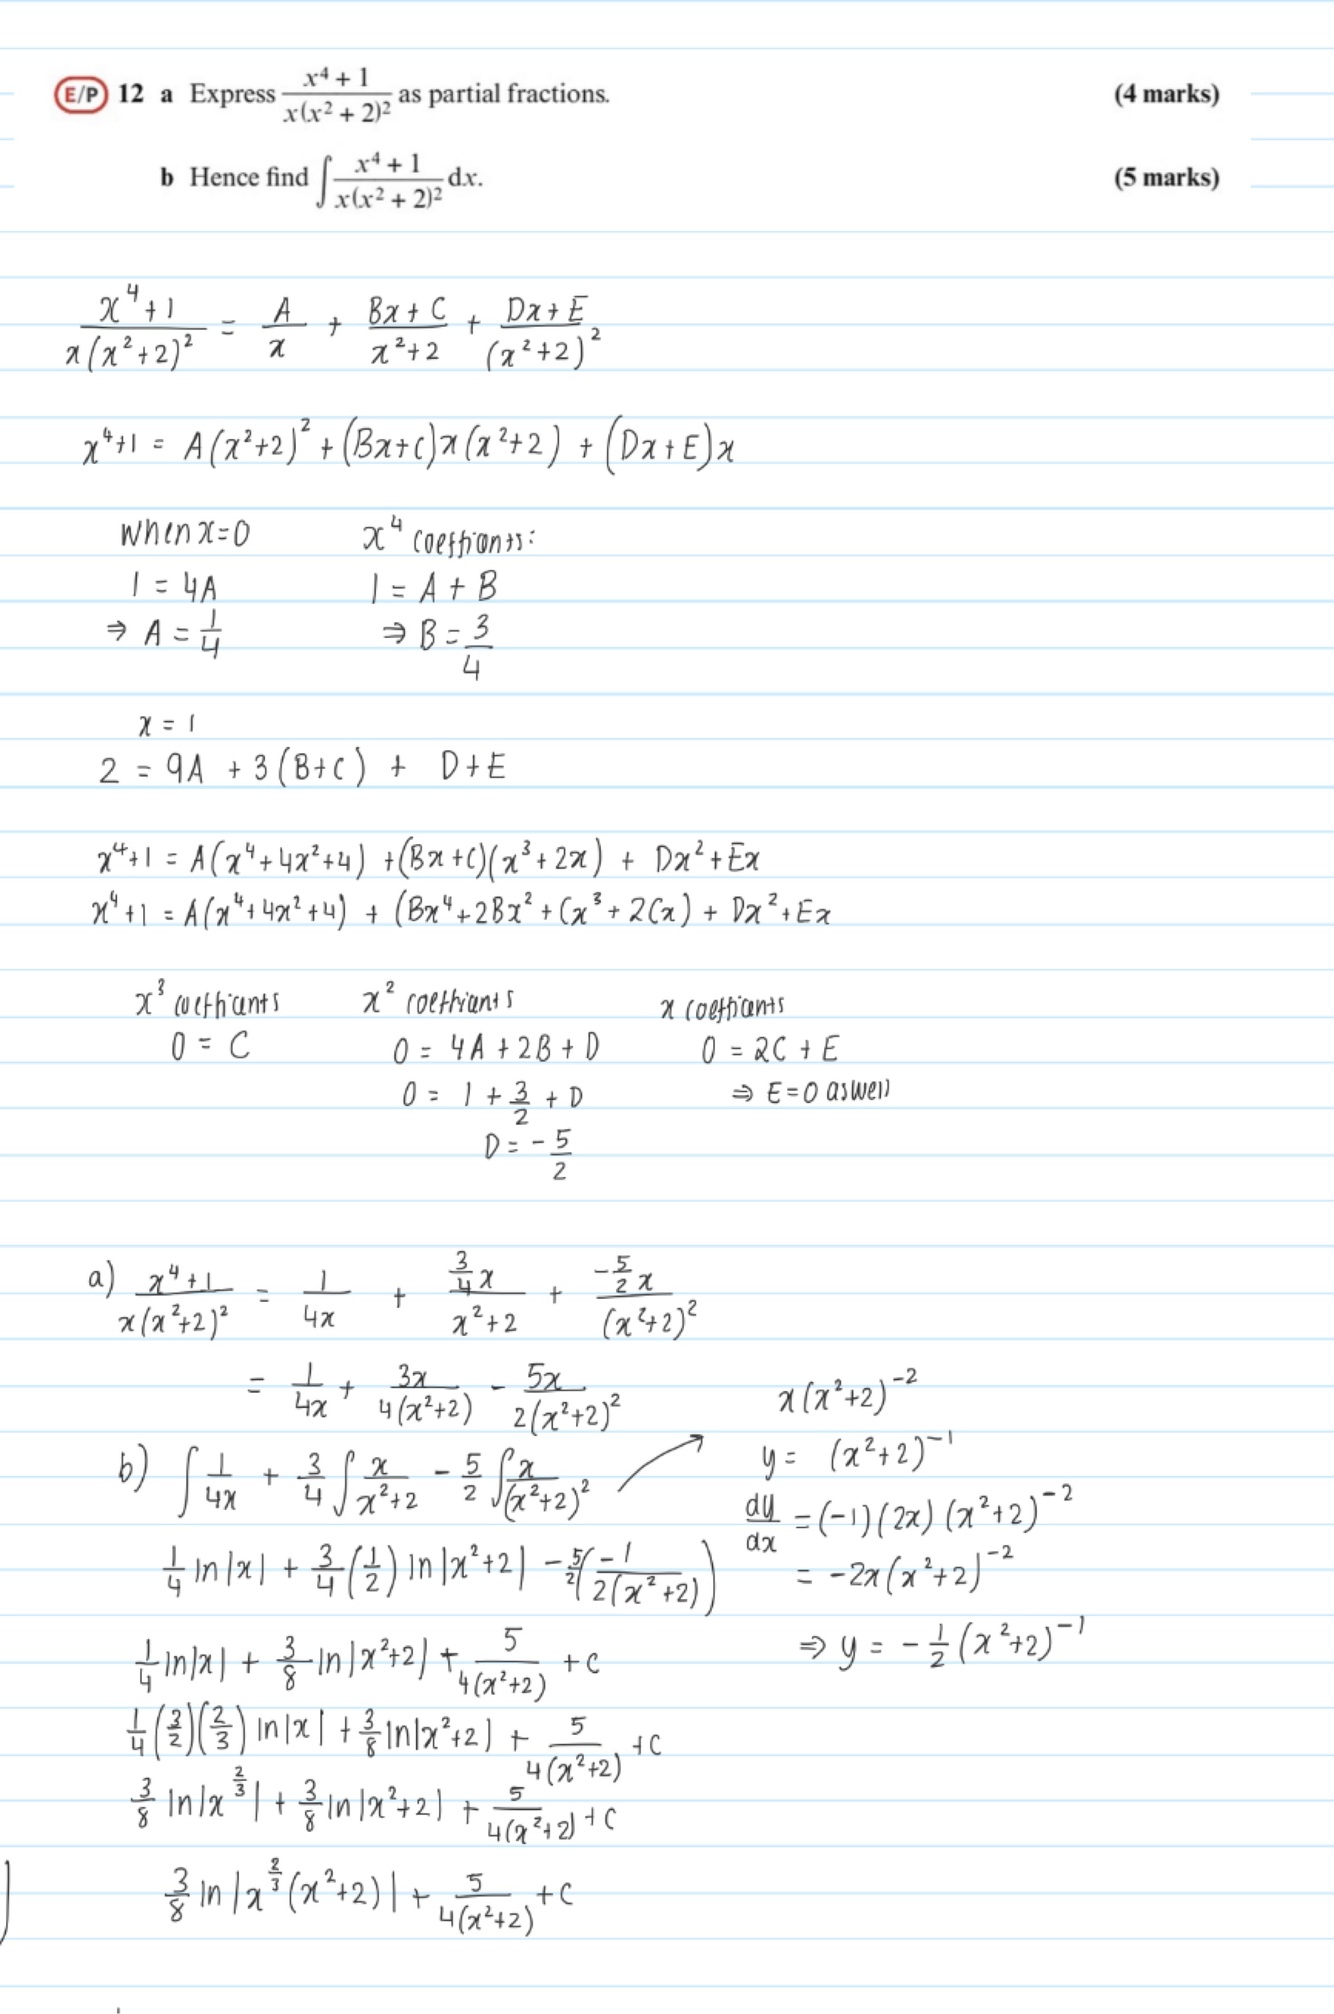 E/P 12 a Express (x⁴ + 1)/(x(x² + 2)²) as partial fractions. (4 marks)
b Hence find ∫ (x⁴ + 1)/(x(x² + 2)²) dx. (5 marks)
(x⁴+1)/(x(x²+2)²) = A/x + (Bx+C)/(x²+2) + (Dx+E)/(x²+2)²
x⁴+1 = A(x²+2)² + (Bx+C)x(x²+2) + (Dx+E)x
When x=0 x⁴ coeffiants:
1 = 4A 1 = A + B
⇒ A = 1/4 ⇒ B = 3/4
x = 1
2 = 9A + 3(B+C) + D+E
x⁴+1 = A(x⁴+4x²+4) + (Bx+C)(x³+2x) + Dx²+Ex
x⁴+1 = A(x⁴+4x²+4) + (Bx⁴+2Bx²+Cx³+2Cx) + Dx²+Ex
x³ coeffiants x² coeffiants x coeffiants
0 = C 0 = 4A + 2B + D 0 = 2C + E
0 = 1 + 3/2 + D ⇒ E=0 aswell
D = -5/2
a) (x⁴+1)/(x(x²+2)²) = 1/(4x) + (3/4 x)/(x²+2) + (-5/2 x)/(x²+2)²
= 1/(4x) + 3x/(4(x²+2)) - 5x/(2(x²+2)²)
x(x²+2)⁻²
b) ∫ 1/(4x) + 3/4 ∫ x/(x²+2) - 5/2 ∫ x/(x²+2)²
y = (x²+2)⁻¹
dy/dx = (-1)(2x)(x²+2)⁻²
= -2x(x²+2)⁻²
⇒ y = -1/2 (x²+2)⁻¹
1/4 ln|x| + 3/4 (1/2) ln|x²+2| - 5/2(-1/(2(x²+2)))
1/4 ln|x| + 3/8 ln|x²+2| + 5/(4(x²+2)) + c
1/4 (3/2)(2/3) ln|x| + 3/8 ln|x²+2| + 5/(4(x²+2)) + c
3/8 ln|x^(2/3)| + 3/8 ln|x²+2| + 5/(4(x²+2)) + c
3/8 ln|x^(2/3)(x²+2)| + 5/(4(x²+2)) + c